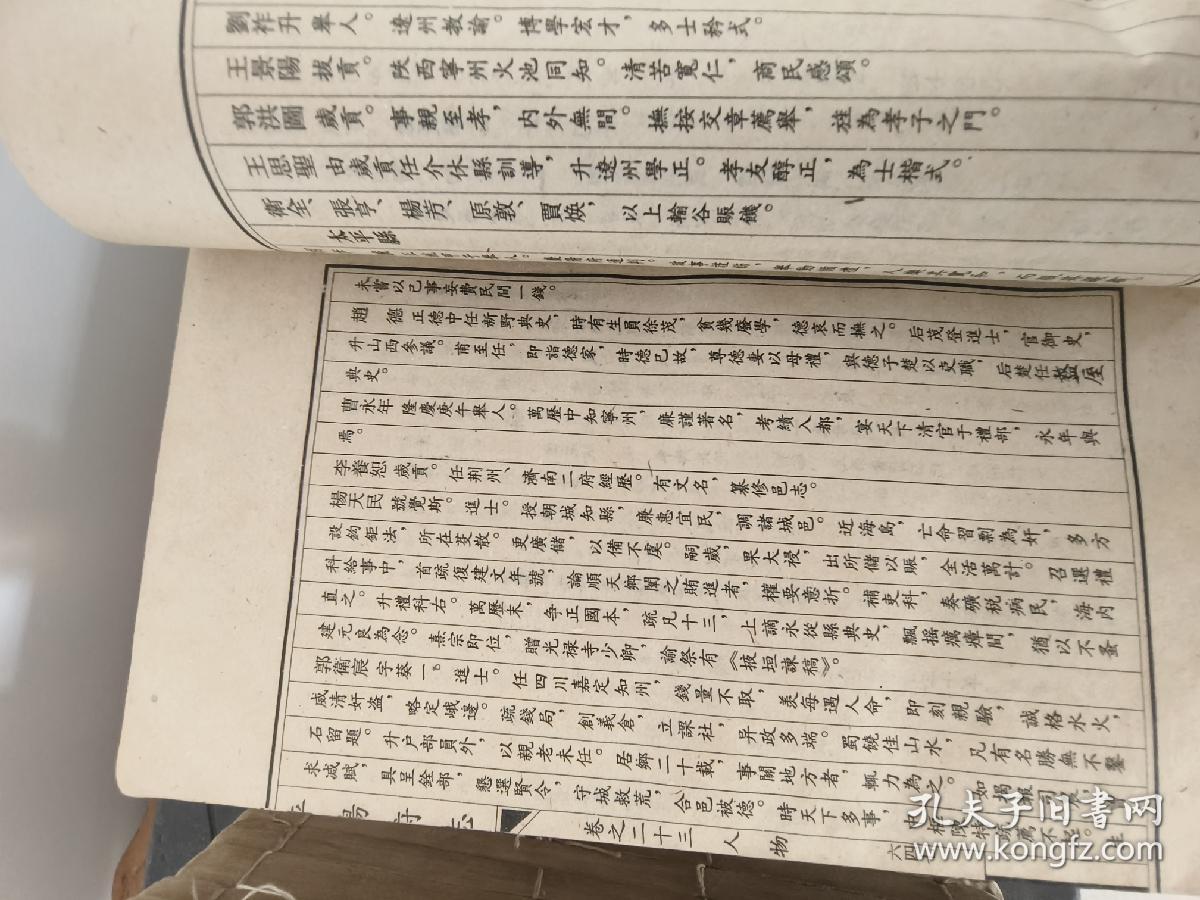 劉祚升 舉人。遼州教諭。博學宏才，多士矜式。
王景陽 拔貢。陝西寧州火池同知。清苦寬仁，商民感頌。
郭洪圖 歲貢。事親至孝，内外無間。撫按交章薦舉，旌為孝子之門。
王思聖 由歲貢任介休縣訓導，升遼州學正。孝友醇正，為士楷式。
衛全、張亨、楊芳、原敦、賈煥，以上輸谷賑饑。
太平縣
未嘗以己事妄費民間一錢。
趙德 正德中任新野典史，時有生員徐茂，貧幾廢學，德哀而撫之。后茂登進士，官御史，
升山西參議。甫至任，即詣德家，時德已故，尊德妻以母禮，與德子楚以吏職，后楚任盩厔
典史。
曹永年 隆慶庚午舉人。萬歷中知寧州，廉謹著名，考績入都，宴天下清官于禮部，永年與
焉。
李養恕 歲貢。任荆州、濟南二府經歷。有文名，纂修邑志。
楊天民 號覺斯。進士。授朝城知縣，廉惠宜民，調諸城邑。近海島，亡命習剽為奸，多方
設鈎鉅法，所在芟散。更廣儲，以備不虞。嗣歲，果大祲，出所儲以賑，全活萬計。召選禮
科給事中，首疏復建文年號，論順天鄉闈之賄進者，權要意折。補吏科，奏礦稅病民，海内
直之。升禮科右。萬歷末，争正國本，疏凡十三，上謫永從縣典史，飄摇癘瘴間，猶以不蚤
建元良為念。熹宗即位，贈光禄寺少卿，諭祭有《掖垣諫稿》。
郭衛宸 字葵一。進士。任四川嘉定知州，錢量不取，美每遇人命，即刻親驗，誠格水火，
威清奸盗，略定峨邊。疏錢局，創義倉，立課社，异政多端。蜀饒佳山水，凡有名勝無不鑿
石留題。升户部員外，以親老未任。居鄉二十載，事關地方者，輒力為之。如揭
求减賦，具呈銓部，懇選賢令，守城救荒，合邑被德。時天下多事，
卷之二十三 人物
六四
孔夫子旧书网
www.kongfz.com